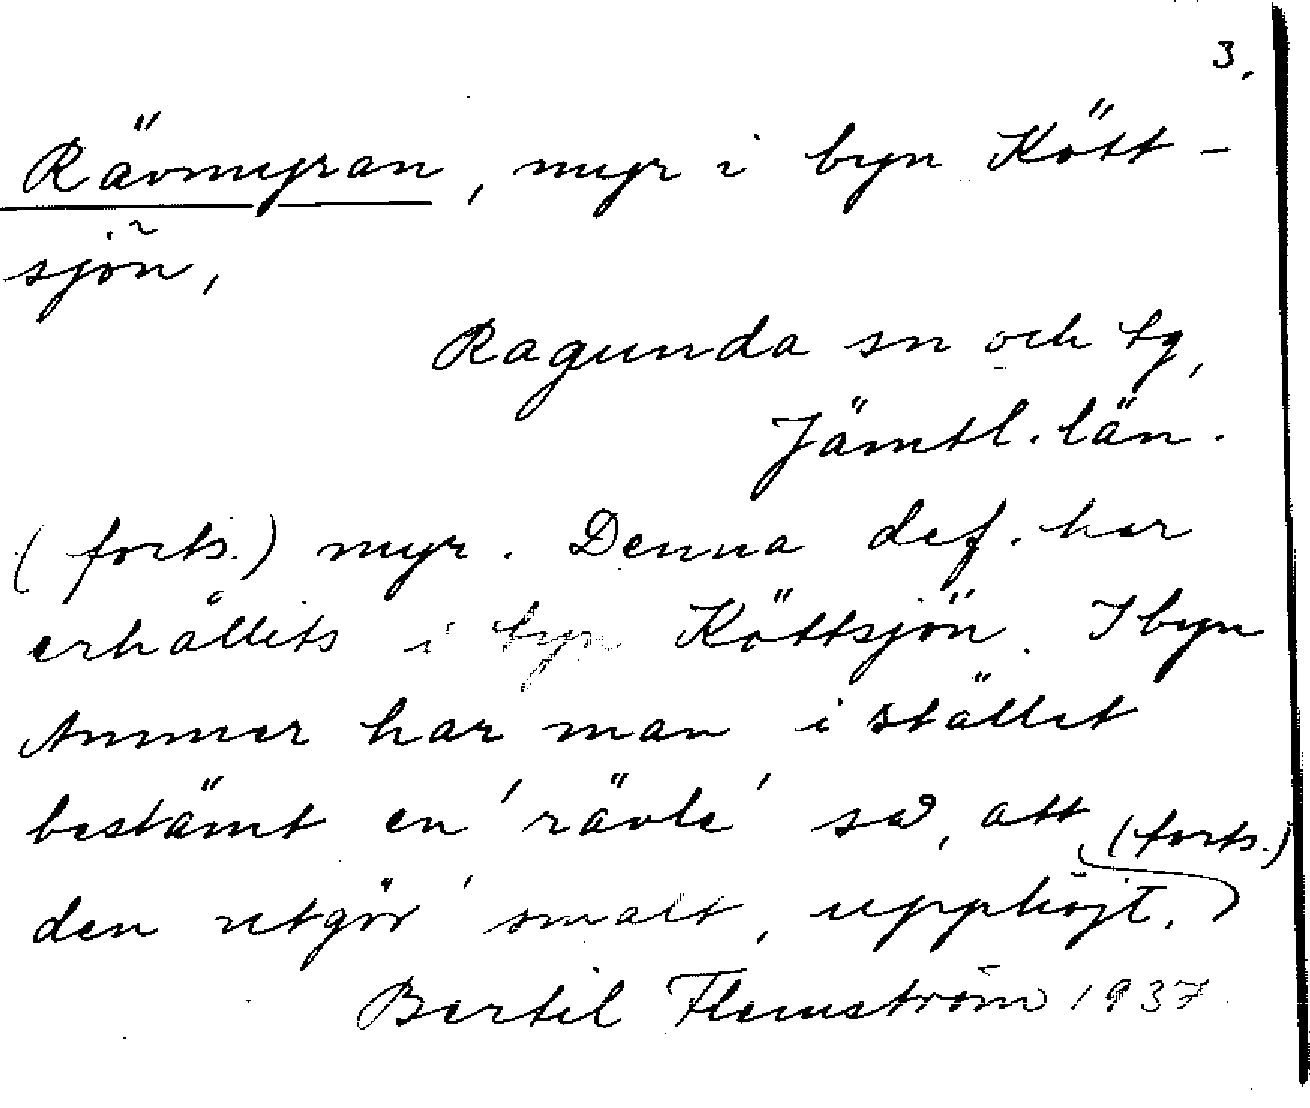 3.
Rävmyran, myr i byn Kött-
sjön,
Ragunda sn och tg,
Jämtl. län.
(forts.) myr. Denna def. har
erhållits i byn Köttsjön. I byn
Ammer har man i stället
bestämt en 'rävle' så, att
(forts.)
den utgör 'smalt, upphöjt,
Bertil Flemström 1937